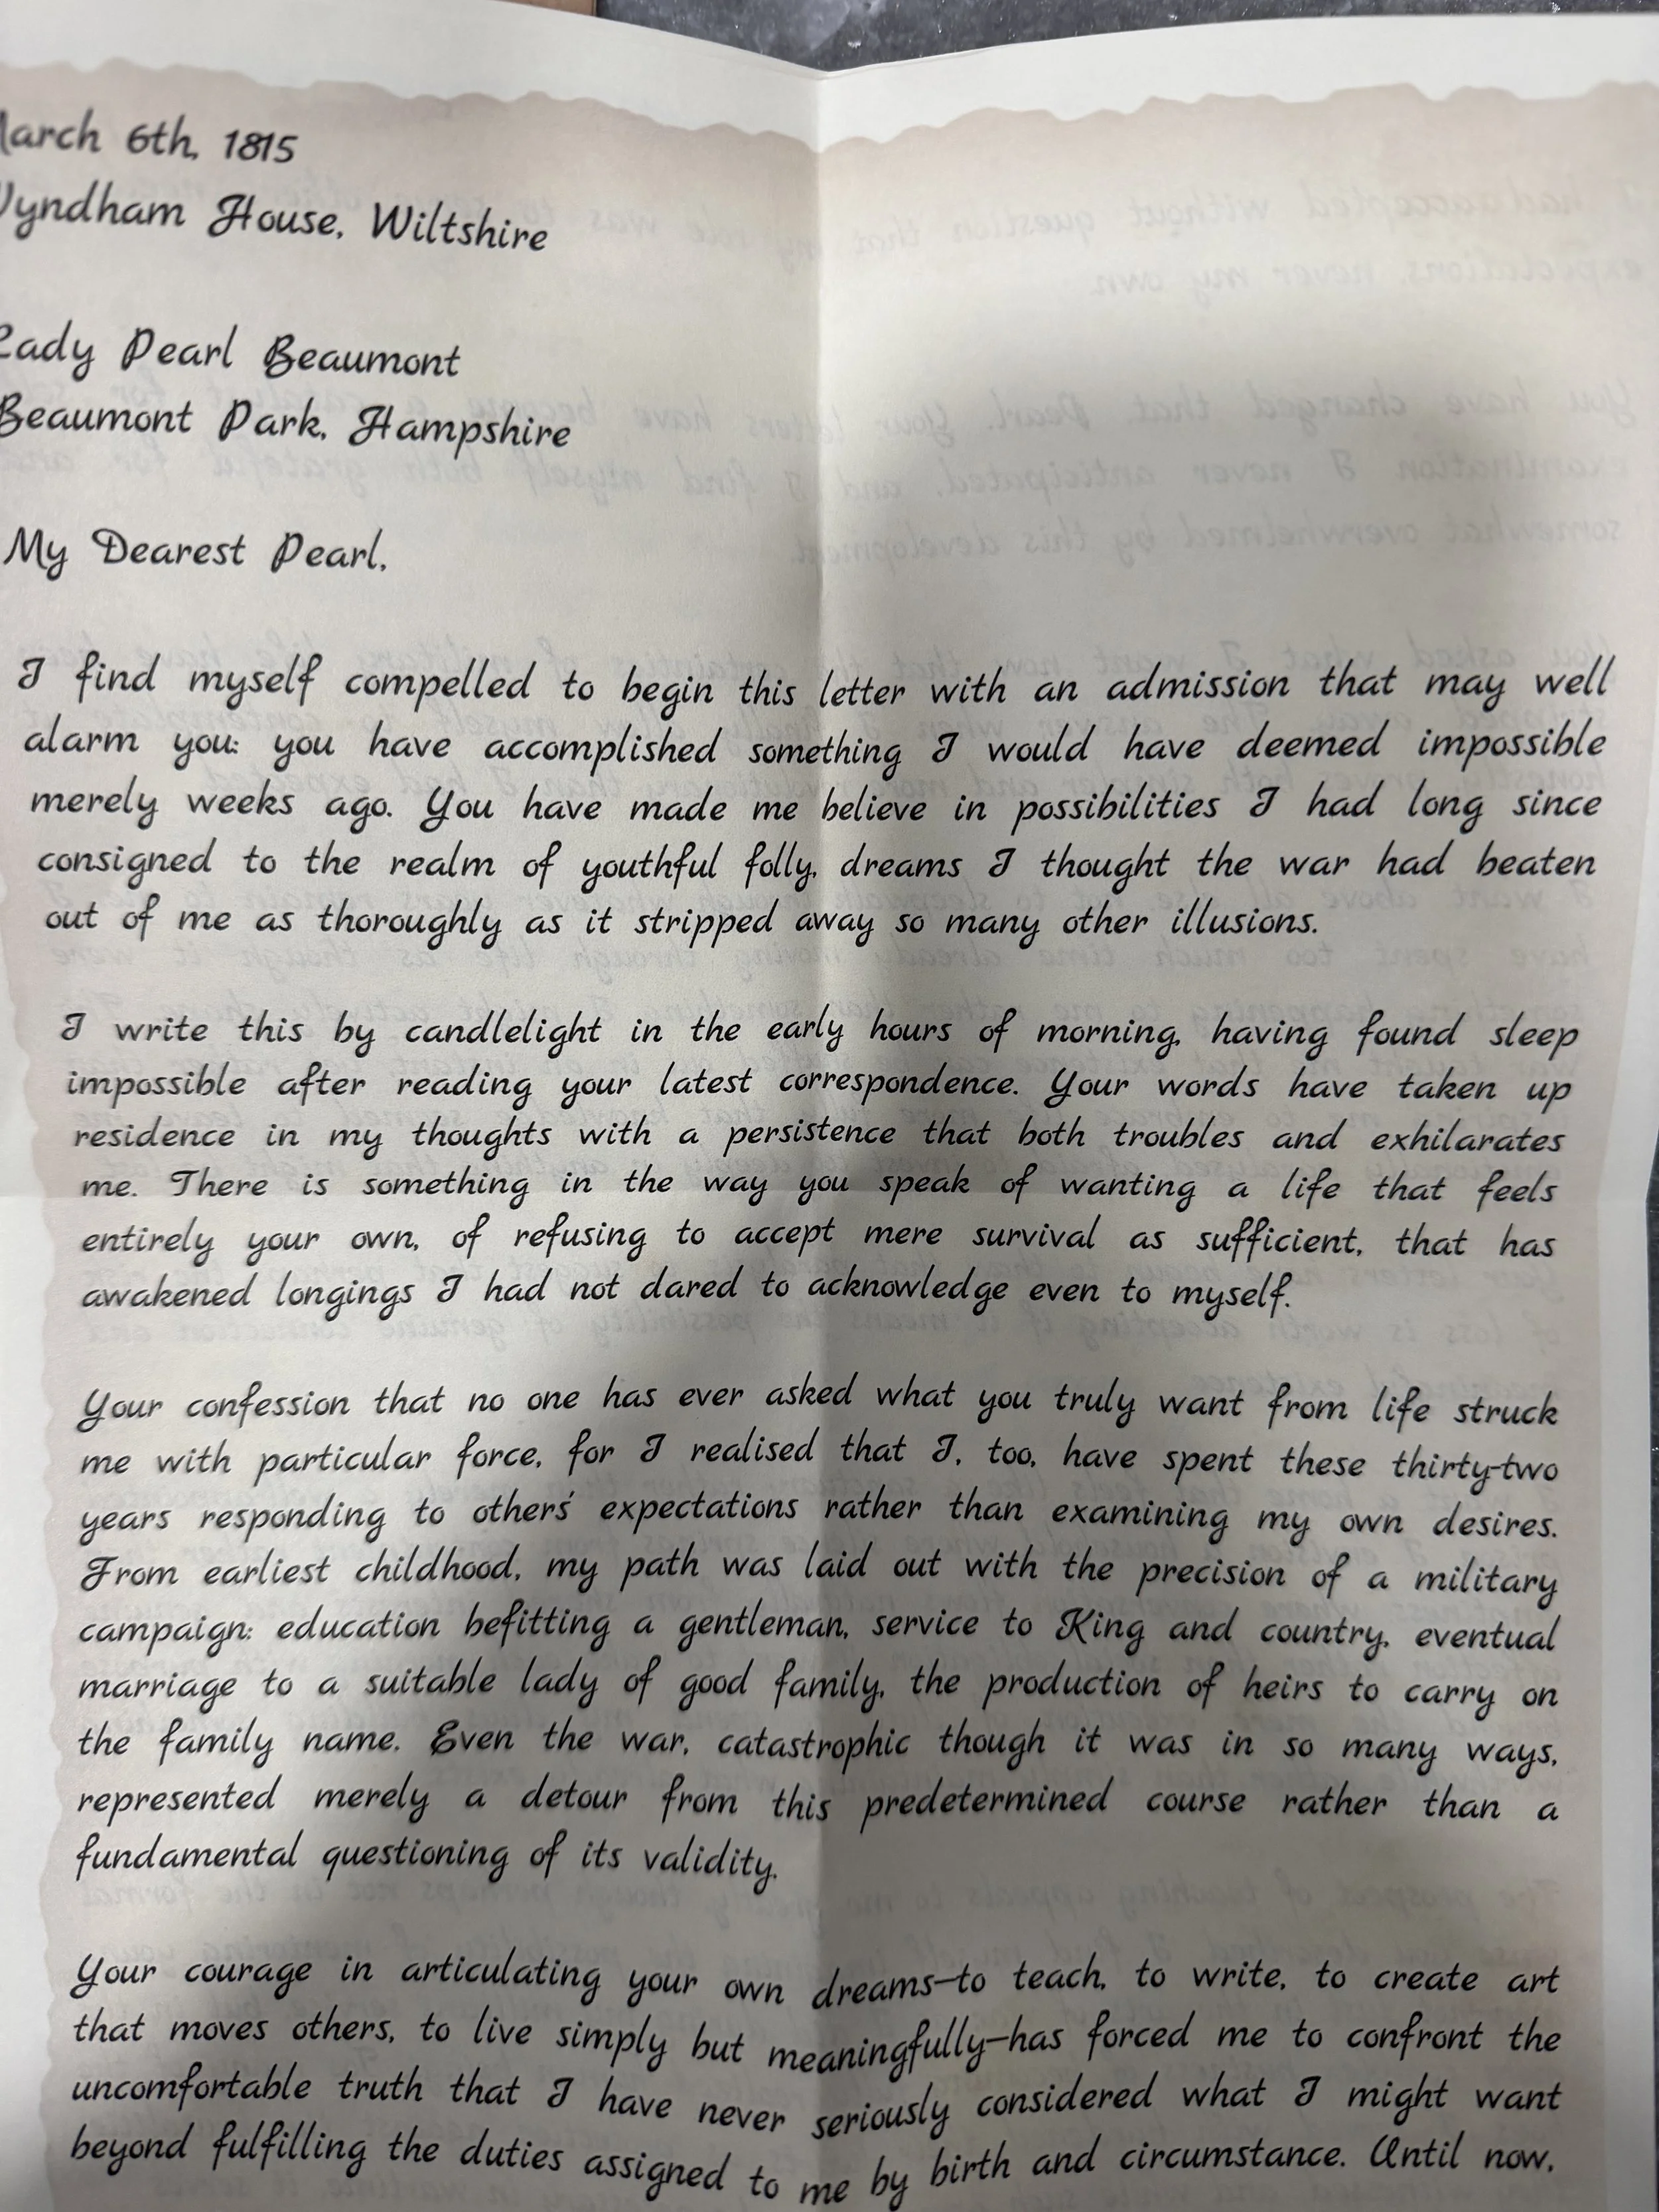 March 6th, 1815
Wyndham House, Wiltshire
Lady Pearl Beaumont
Beaumont Park, Hampshire
My Dearest Pearl,
I find myself compelled to begin this letter with an admission that may well
alarm you: you have accomplished something I would have deemed impossible
merely weeks ago. You have made me believe in possibilities I had long since
consigned to the realm of youthful folly, dreams I thought the war had beaten
out of me as thoroughly as it stripped away so many other illusions.
I write this by candlelight in the early hours of morning, having found sleep
impossible after reading your latest correspondence. Your words have taken up
residence in my thoughts with a persistence that both troubles and exhilarates
me. There is something in the way you speak of wanting a life that feels
entirely your own, of refusing to accept mere survival as sufficient, that has
awakened longings I had not dared to acknowledge even to myself.
Your confession that no one has ever asked what you truly want from life struck
me with particular force, for I realised that I, too, have spent these thirty-two
years responding to others' expectations rather than examining my own desires.
From earliest childhood, my path was laid out with the precision of a military
campaign: education befitting a gentleman, service to King and country, eventual
marriage to a suitable lady of good family, the production of heirs to carry on
the family name. Even the war, catastrophic though it was in so many ways,
represented merely a detour from this predetermined course rather than a
fundamental questioning of its validity.
Your courage in articulating your own dreams—to teach, to write, to create art
that moves others, to live simply but meaningfully—has forced me to confront the
uncomfortable truth that I have never seriously considered what I might want
beyond fulfilling the duties assigned to me by birth and circumstance. Until now,